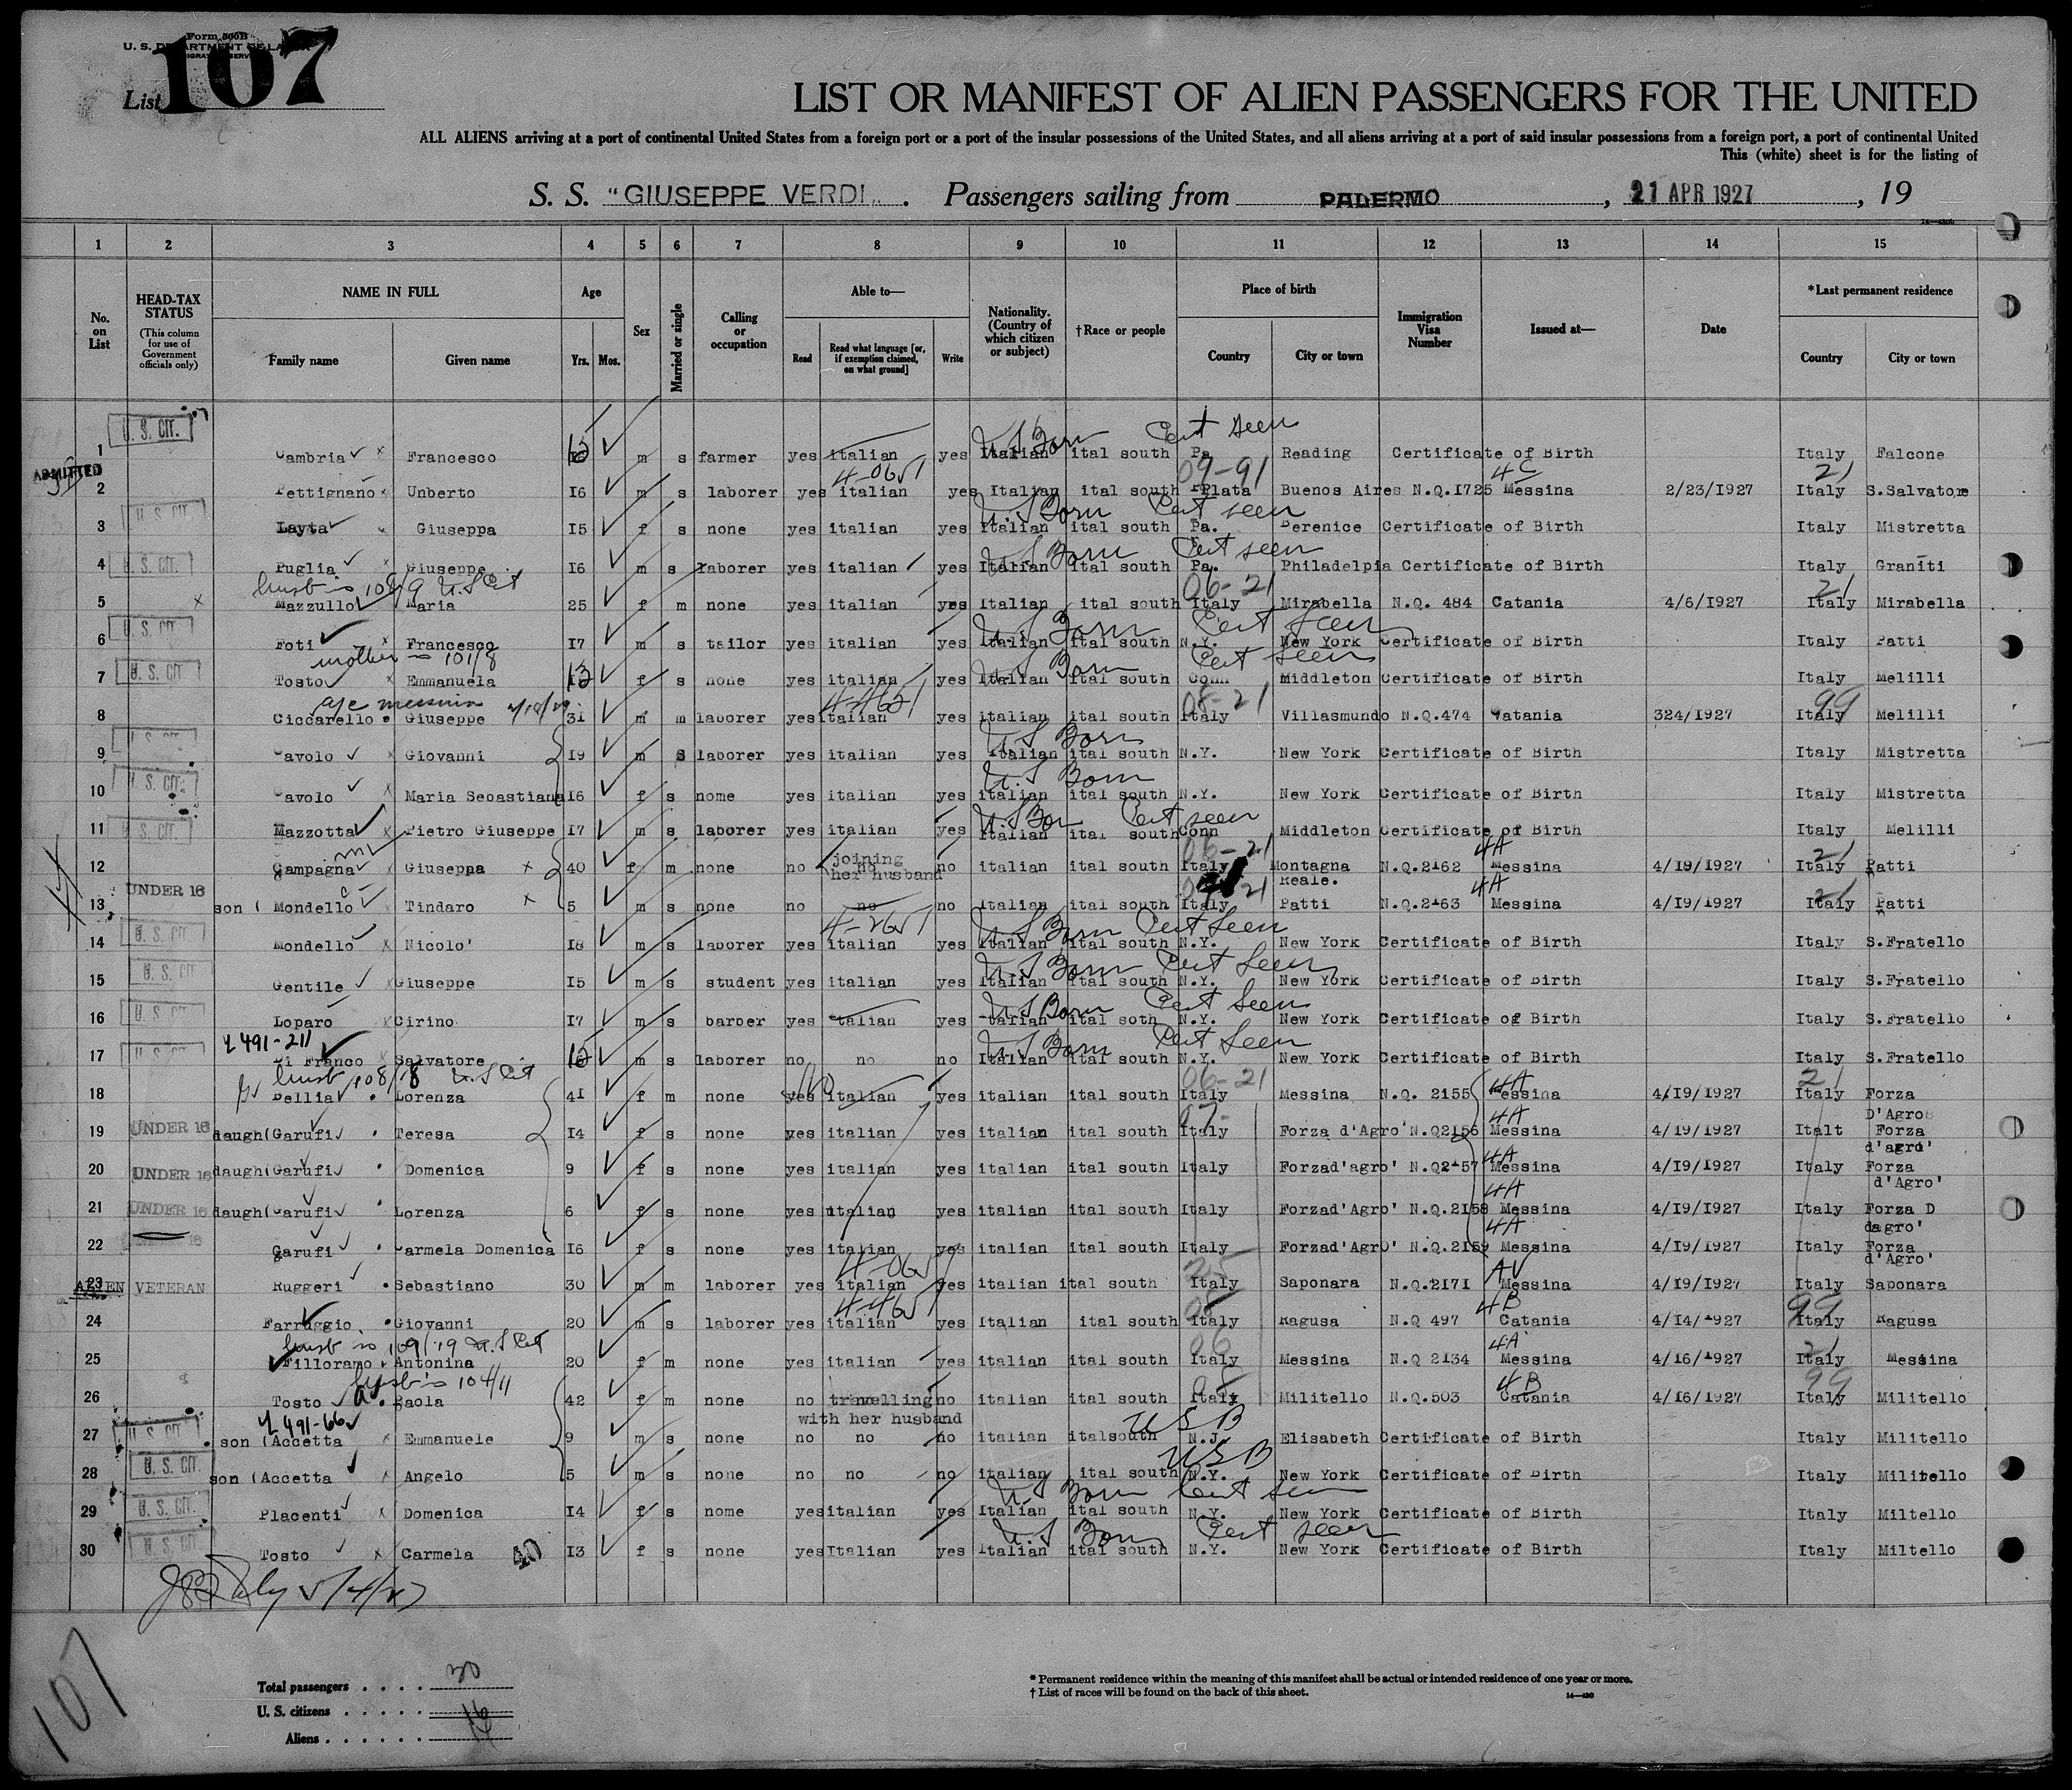 Form 500B
U. S. DEPARTMENT OF LABOR
List 107
LIST OR MANIFEST OF ALIEN PASSENGERS FOR THE UNITED
ALL ALIENS arriving at a port of continental United States from a foreign port or a port of the insular possessions of the United States, and all aliens arriving at a port of said insular possessions from a foreign port, a port of continental United
This (white) sheet is for the listing of
S. S. "GIUSEPPE VERDI". Passengers sailing from PALERMO, 21 APR 1927, 19
1 2 3 4 5 6 7 8 9 10 11 12 13 14 15
No. on List
HEAD-TAX STATUS (This column for use of Government officials only)
NAME IN FULL Family name Given name
Age Yrs. Mos.
Sex
Married or single
Calling or occupation
Able to— Read Read what language [or, if exemption claimed, on what ground] Write
Nationality. (Country of which citizen or subject)
†Race or people
Place of birth Country City or town
Immigration Visa Number
Issued at—
Date
*Last permanent residence Country City or town
U. S. CIT. U S Born Cert seen
1 Cambria Francesco m s farmer yes italian yes Italian ital south Pa Reading Certificate of Birth Italy Falcone
ADMITTED 09-91 4C 21
2 Pettignano Unberto 16 m s laborer yes italian yes Italian ital south Plata Buenos Aires N.Q.1725 Messina 2/23/1927 Italy S.Salvatore
U. S. CIT. U S Born Cert seen
3 Layta Giuseppa 15 f s none yes italian yes Italian ital south Pa. Berenice Certificate of Birth Italy Mistretta
U. S. CIT. U S Born Cert seen
4 Puglia Giuseppe 16 m s laborer yes italian yes Italian ital south Pa. Philadelpia Certificate of Birth Italy Graniti
husb is 106/9 U.S Cit 06-21 21
5 Mazzullo Maria 25 f m none yes italian yes Italian ital south Italy Mirabella N.Q. 484 Catania 4/6/1927 Italy Mirabella
U. S. CIT. U S Born Cert seen
6 Foti Francesco 17 m s tailor yes italian yes Italian ital south N.Y. New York Certificate of Birth Italy Patti
U. S. CIT. mother is 101/8 U S Born Cert seen
7 Tosto Emmanuela f s none yes italian yes Italian ital south Conn Middleton Certificate of Birth Italy Melilli
messina 08-21 99
8 Ciccarello Giuseppe 31 m m laborer yes italian yes italian ital south Italy Villasmundo N.Q.474 Catania 324/1927 Italy Melilli
U. S. CIT. U.S Born
9 Cavolo Giovanni 19 m s laborer yes italian yes Italian ital south N.Y. New York Certificate of Birth Italy Mistretta
U. S. CIT. U.S Born
10 Cavolo Maria Sebastiana 16 f s nome yes italian yes italian ital south N.Y. New York Certificate of Birth Italy Mistretta
U. S. CIT. U S Bor Cert seen
11 Mazzotta Pietro Giuseppe 17 m s laborer yes italian yes Italian ital south Conn Middleton Certificate of Birth Italy Melilli
06-21 4A 21
12 Campagna Giuseppa 40 f m none no no joining her husband no italian ital south Italy Montagna Reale. N.Q.2162 Messina 4/19/1927 Italy Patti
UNDER 16 21 4A 21
13 son ( Mondello Tindaro 5 m s none no no no Italian ital south Italy Patti N.Q.2163 Messina 4/19/1927 Italy Patti
U. S. CIT. U S Born Cert Seen
14 Mondello Nicolo' 18 m s laborer yes italian yes Italian ital south N.Y. New York Certificate of Birth Italy S.Fratello
U. S. CIT U S Born Cert Seen
15 Gentile Giuseppe 15 m s student yes italian yes Italian ital south N.Y. New York Certificate of Birth Italy S.Fratello
U. S. CIT. U S Born Cert Seen
16 Loparo Cirino 17 m s barber yes italian yes italian ital soth N.Y. New York Certificate of Birth Italy S.Fratello
U. S. CIT. U S Born Cert Seen
17 Di Franco Salvatore m s laborer no no no Italian ital south N.Y. New York Certificate of Birth Italy S.Fratello
husb 108/18 U.S Cit 06-21 4A 21
18 Bellia Lorenza 41 f m none yes italian yes italian ital south Italy Messina N.Q. 2155 Messina 4/19/1927 Italy Forza D'Agro
UNDER 16 07- 4A
19 daugh(Garufi Teresa 14 f s none yes italian yes italian ital south Italy Forza d'Agro' N.Q2156 Messina 4/19/1927 Italt Forza d'agro'
UNDER 16 4A
20 daugh(Garufi Domenica 9 f s none yes italian yes italian ital south Italy Forzad'agro' N.Q2157 Messina 4/19/1927 Italy Forza d'Agro'
UNDER 16 4A
21 daugh(Garufi Lorenza 6 f s none yes italian yes italian ital south Italy Forzad'Agro' N.Q.2158 Messina 4/19/1927 Italy Forza D dagro'
4A
22 Garufi Carmela Domenica 16 f s none yes italian yes italian ital south Italy Forzad'Agro' N.Q.2159 Messina 4/19/1927 Italy Forza d'Agro'
ALIEN VETERAN
23 Ruggeri Sebastiano 30 m m laborer yes italian yes italian ital south Italy Saponara N.Q.2171 Messina 4/19/1927 Italy Saponara
4B 99
24 Farruggio Giovanni 20 m s laborer yes italian yes Italian ital south Italy Ragusa N.Q 497 Catania 4/14/1927 Italy Ragusa
husb is 109/19 U.S Cit 06 4A 21
25 Filloramo Antonina 20 f m none yes italian yes italian ital south Italy Messina N.Q 2134 Messina 4/16/1927 Italy Messina
husb is 104/11 4B 99
26 Tosto Paola 42 f m none no travelling with her husband no italian ital south Italy Militello N.Q.503 Catania 4/16/1927 Italy Militello
U. S. CIT. U S B
27 son (Accetta Emmanuele 9 m s none no no no italian italsouth N.J. Elisabeth Certificate of Birth Italy Militello
U. S. CIT. U S B
28 son (Accetta Angelo 5 m s none no no no italian ital south N.Y. New York Certificate of Birth Italy Militello
U. S. CIT. U.S Born Cert seen
29 Placenti Domenica 14 f s nome yes italian yes Italian ital south N.Y. New York Certificate of Birth Italy Miltello
U. S. CIT. U.S Born Cert seen
30 Tosto Carmela 40 13 f s none yes Italian yes Italian ital south N.Y. New York Certificate of Birth Italy Miltello
107
Total passengers . . . . 30
U. S. citizens . . . . . 16
Aliens . . . . . .
* Permanent residence within the meaning of this manifest shall be actual or intended residence of one year or more.
† List of races will be found on the back of this sheet.